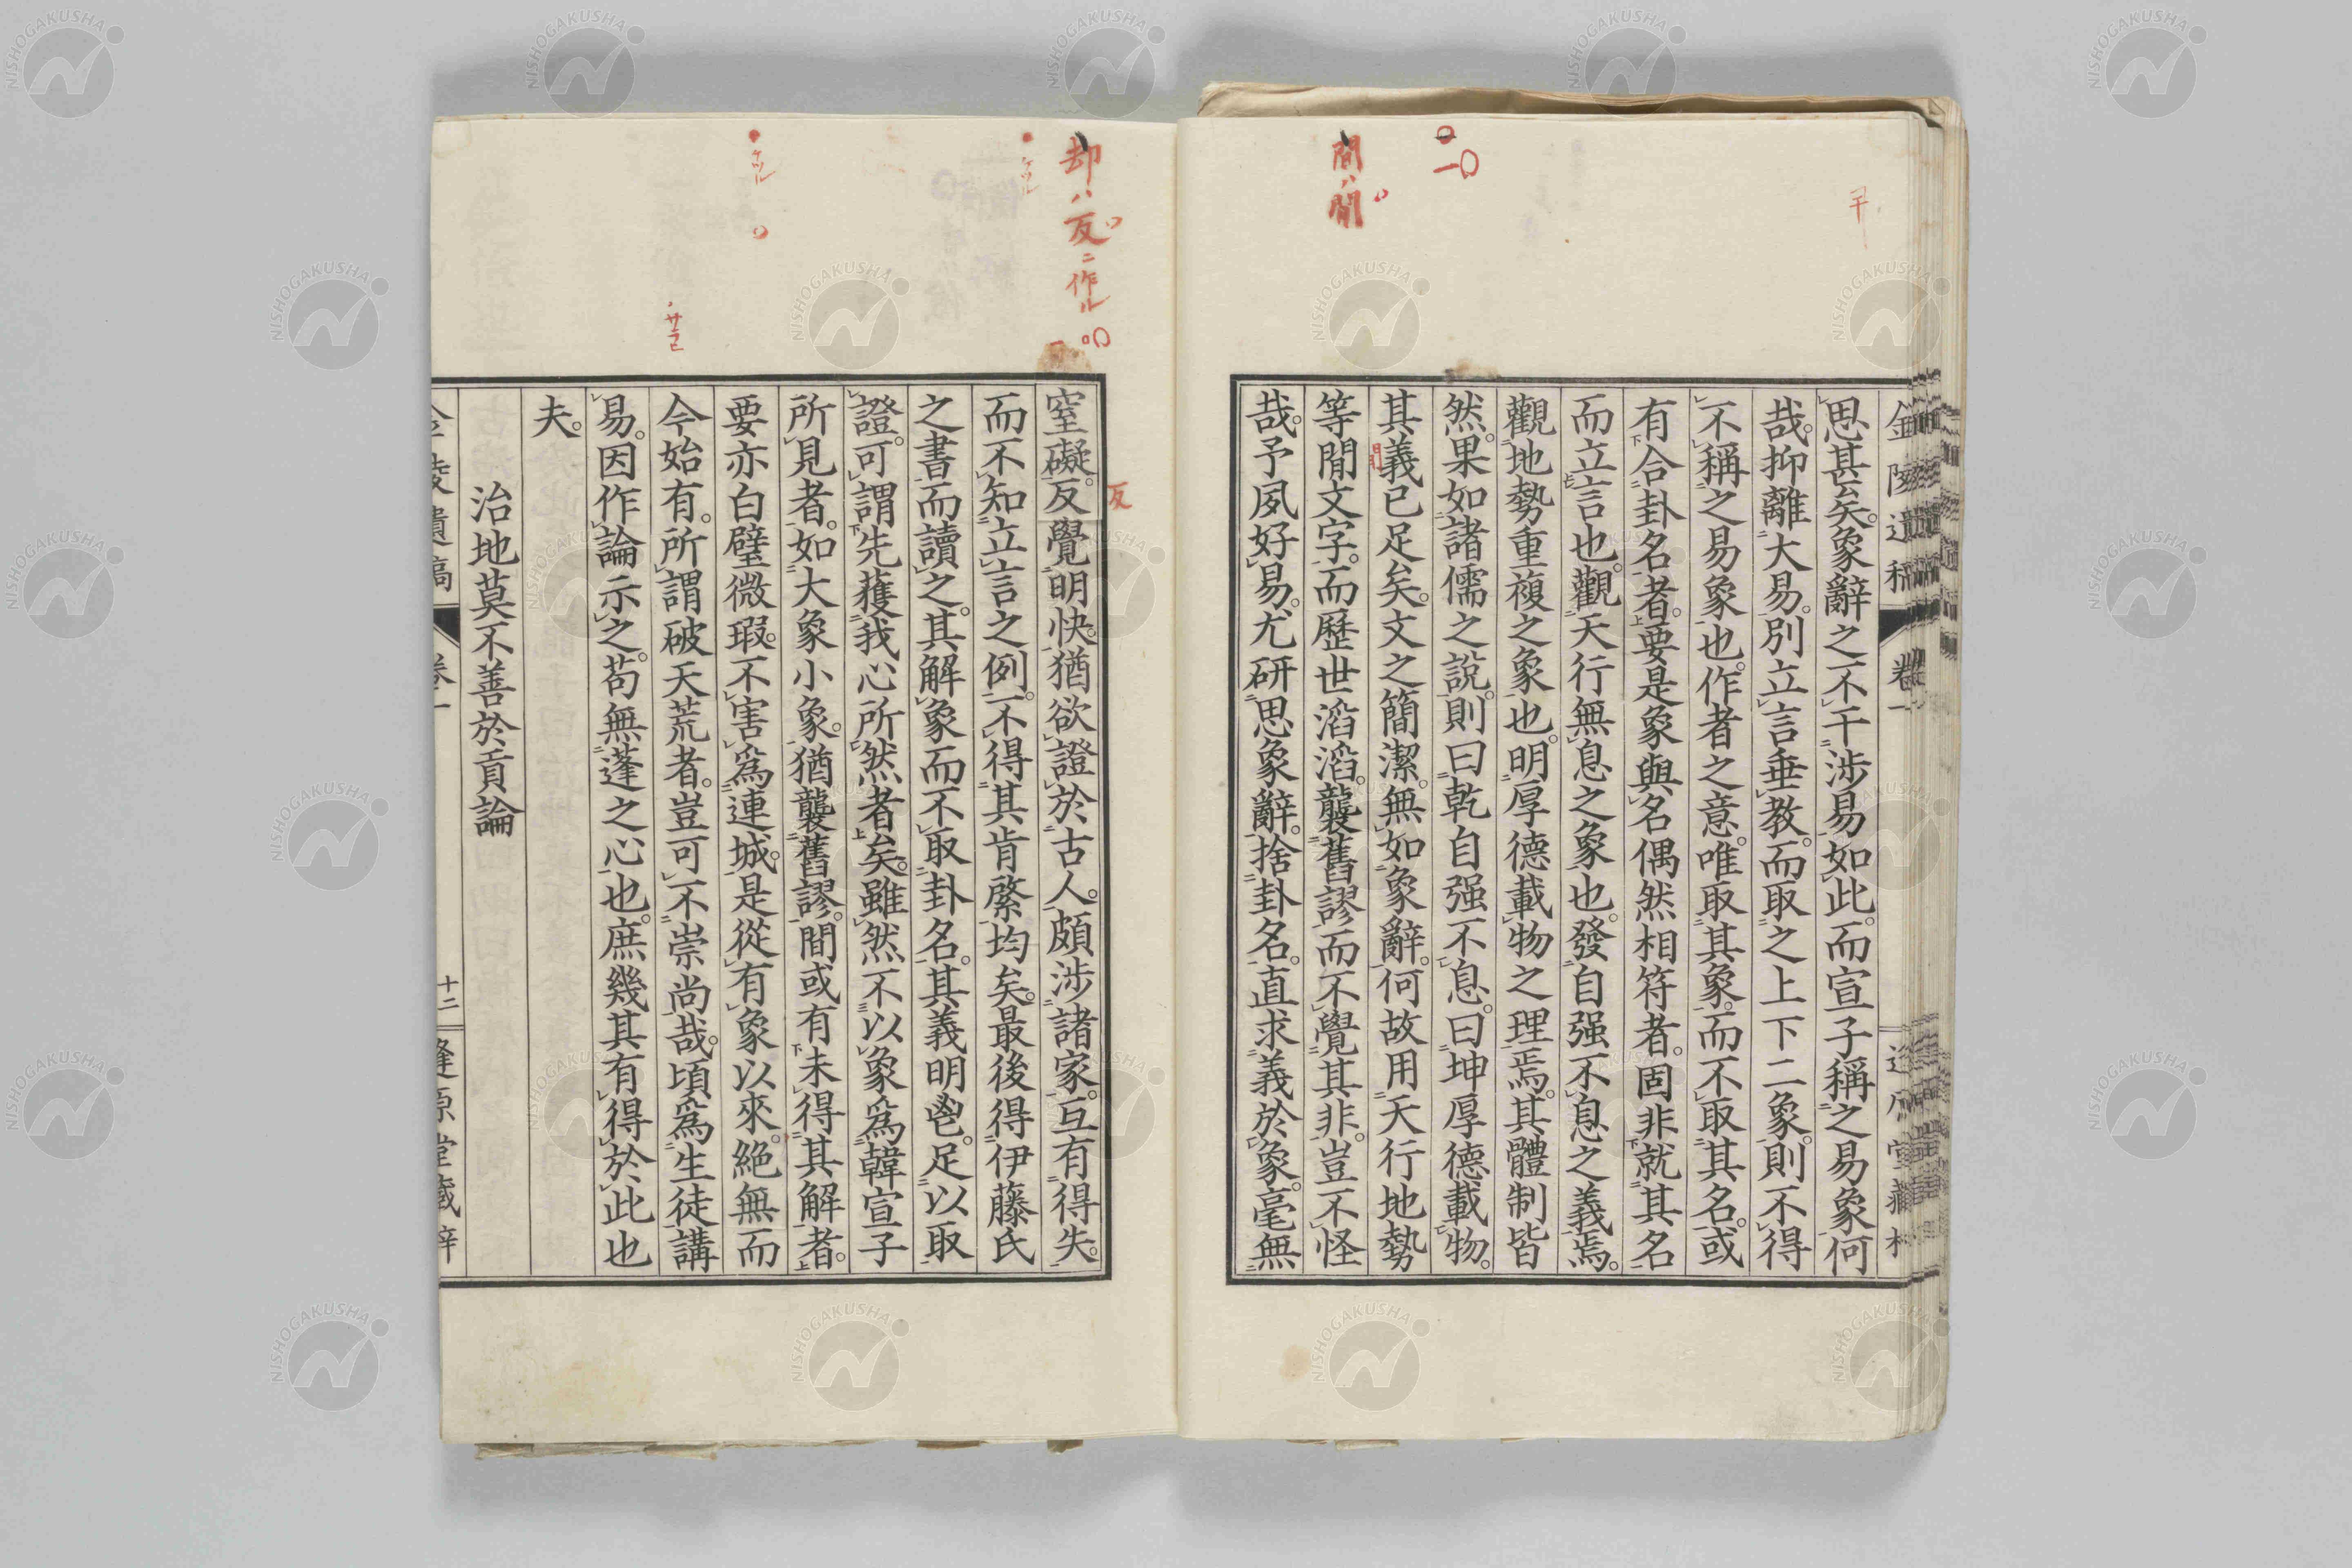 干
一〇
間ハ間
金陵遺稿
卷一
思甚矣。象辭之不干涉易如此。而宣子稱之易象何
哉。抑離大易。別立言垂教。而取之上下二象。則不得
不稱之易象也。作者之意。唯取其象。而不取其名。或
有合卦名者。要是象與名偶然相符者。固非就其名
而立言也。觀天行無息之象也。發自强不息之義焉。
觀地勢重複之象也。明厚德載物之理焉。其體制皆
然。果如諸儒之說。則曰乾自强不息。曰坤厚德載物。
其義已足矣。文之簡潔。無如象辭。何故用天行地勢
等閒文字。而歷世滔滔。襲舊謬而不覺其非。豈不怪
哉。予夙好易。尤研思象辭。捨卦名。直求義於象。毫無
却ハ反ニ作ル
反
窒礙。反覺明快。猶欲證於古人。頗涉諸家。互有得失。
而不知立言之例。不得其肯綮均矣。最後得伊藤氏
之書而讀之。其解象而不取卦名。其義明鬯。足以取
證。可謂先獲我心所然者矣。雖然不以象爲韓宣子
所見者。如大象小象。猶襲舊謬。間或有未得其解者。
要亦白璧微瑕。不害爲連城。是從有象以來。絕無而
今始有。所謂破天荒者。豈可不崇尚哉。頃爲生徒講
易。因作論示之。苟無蓬之心也。庶幾其有得於此也
夫。
治地莫不善於貢論
金陵遺稿
卷一
十二
逢原堂藏梓
NISHOGAKUSHA